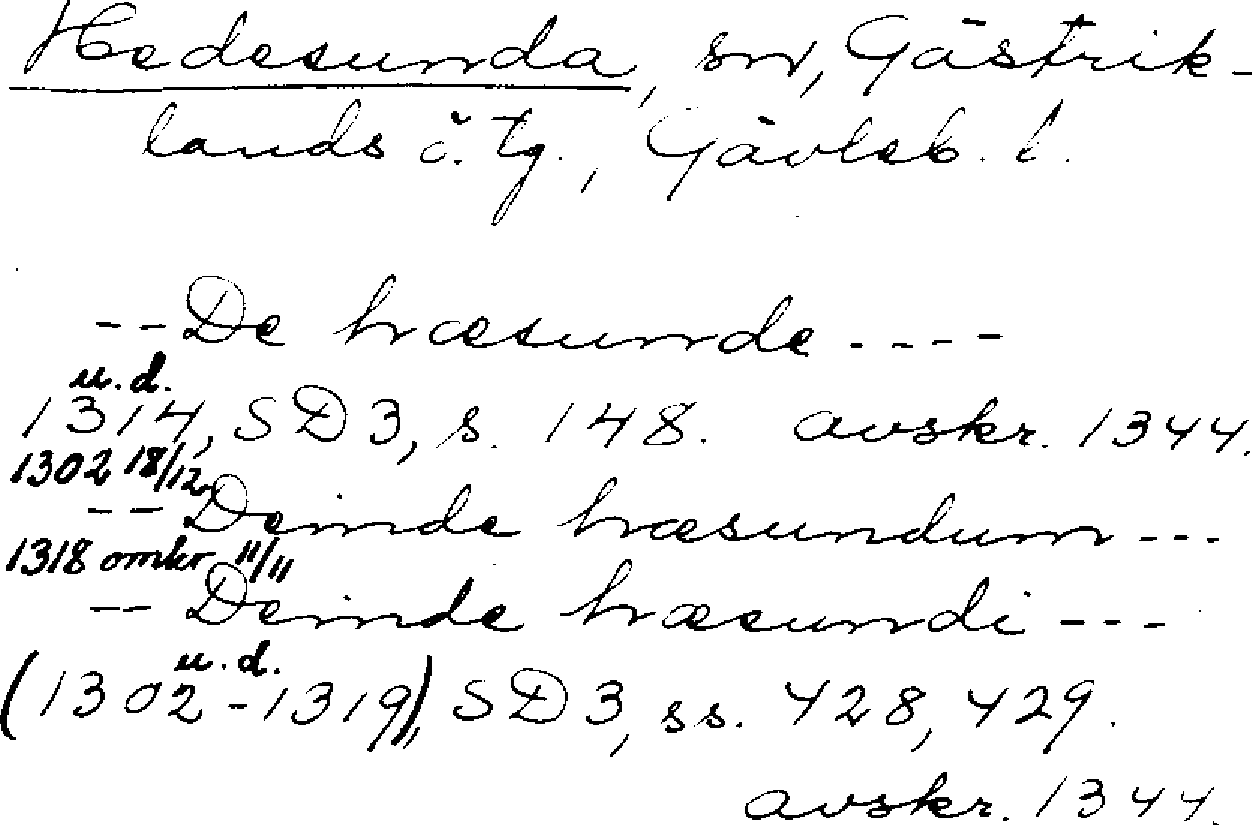 Hedesunda, sn, Gästrik-
lands ö. tg., Gävleb. l.
-- De hræsunde ----
u.d.
1314, SD 3, s. 148. avskr. 1344.
1302 18/12
-- Deinde hræsundum ---
1318 omkr. 11/11
-- Deinde hræsundi ---
u.d.
(1302-1319), SD 3, ss. 428, 429.
avskr. 1344.